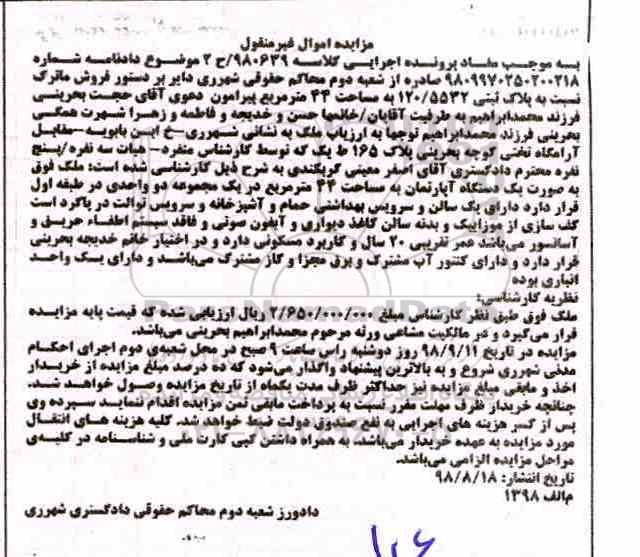 مزایده اموال غیرمنقول
به موجب مفاد پرونده اجرایی کلاسه ۹۸۰۶۳۹/ح ۲ موضوع دادنامه شماره
۹۸۰۹۹۷۰۲۵۰۲۰۰۲۱۸ صادره از شعبه دوم محاکم حقوقی شهرری دایر بر دستور فروش ماترک
نسبت به پلاک ثبتی ۱۲۰/۵۵۳۲ به مساحت ۴۴ مترمربع پیرامون دعوی آقای حجت بحرینی
فرزند محمدابراهیم به طرفیت آقایان/خانمها حسن و خدیجه و فاطمه و زهرا شهرت همگی
بحرینی فرزند محمدابراهیم توجها به ارزیابی ملک به نشانی شهرری-خ ابن بابویه-مقابل
آرامگاه تختی کوچه بحرینی پلاک ۱۶۵ ط یک که توسط کارشناس منفرد-هیات سه نفره/پنج
نفره محترم دادگستری آقای اصغر معینی گریکندی به شرح ذیل کارشناسی شده است: ملک فوق
به صورت یک دستگاه آپارتمان به مساحت ۴۴ مترمربع در یک مجموعه دو واحدی در طبقه اول
قرار دارد دارای یک سالن و سرویس بهداشتی حمام و آشپزخانه و سرویس توالت در پاگرد است
کف سازی از موزاییک و بدنه سالن کاغذ دیواری و آیفون صوتی و فاقد سیستم اطفاء حریق و
آسانسور می‌باشد عمر تقریبی ۲۰ سال و کاربرد مسکونی دارد و در اختیار خانم خدیجه بحرینی
قرار دارد و دارای کنتور آب مشترک و برق مجزا و گاز مشترک می‌باشد و دارای یک واحد
انباری بوده
نظریه کارشناسی:
ملک فوق طبق نظر کارشناس مبلغ ۲/۶۵۰/۰۰۰/۰۰۰ ریال ارزیابی شده که قیمت پایه مزایده
قرار می‌گیرد و در مالکیت مشاعی ورثه مرحوم محمدابراهیم بحرینی می‌باشد.
مزایده در تاریخ ۹۸/۹/۱۱ روز دوشنبه راس ساعت ۹ صبح در محل شعبه‌ی دوم اجرای احکام
مدنی شهرری شروع و به بالاترین پیشنهاد واگذار می‌شود که ده درصد مبلغ مزایده از خریدار
اخذ و مابقی مبلغ مزایده نیز حداکثر ظرف مدت یکماه از تاریخ مزایده وصول خواهد شد.
چنانچه خریدار ظرف مهلت مقرر نسبت به پرداخت مابقی ثمن مزایده اقدام ننماید سپرده وی
پس از کسر هزینه های اجرایی به نفع صندوق دولت ضبط خواهد شد. کلیه هزینه های انتقال
مورد مزایده به عهده خریدار می‌باشد، به همراه داشتن کپی کارت ملی و شناسنامه در کلیه‌ی
مراحل مزایده الزامی می‌باشد.
تاریخ انتشار: ۹۸/۸/۱۸
م‌الف ۱۳۹۸
دادورز شعبه دوم محاکم حقوقی دادگستری شهرری